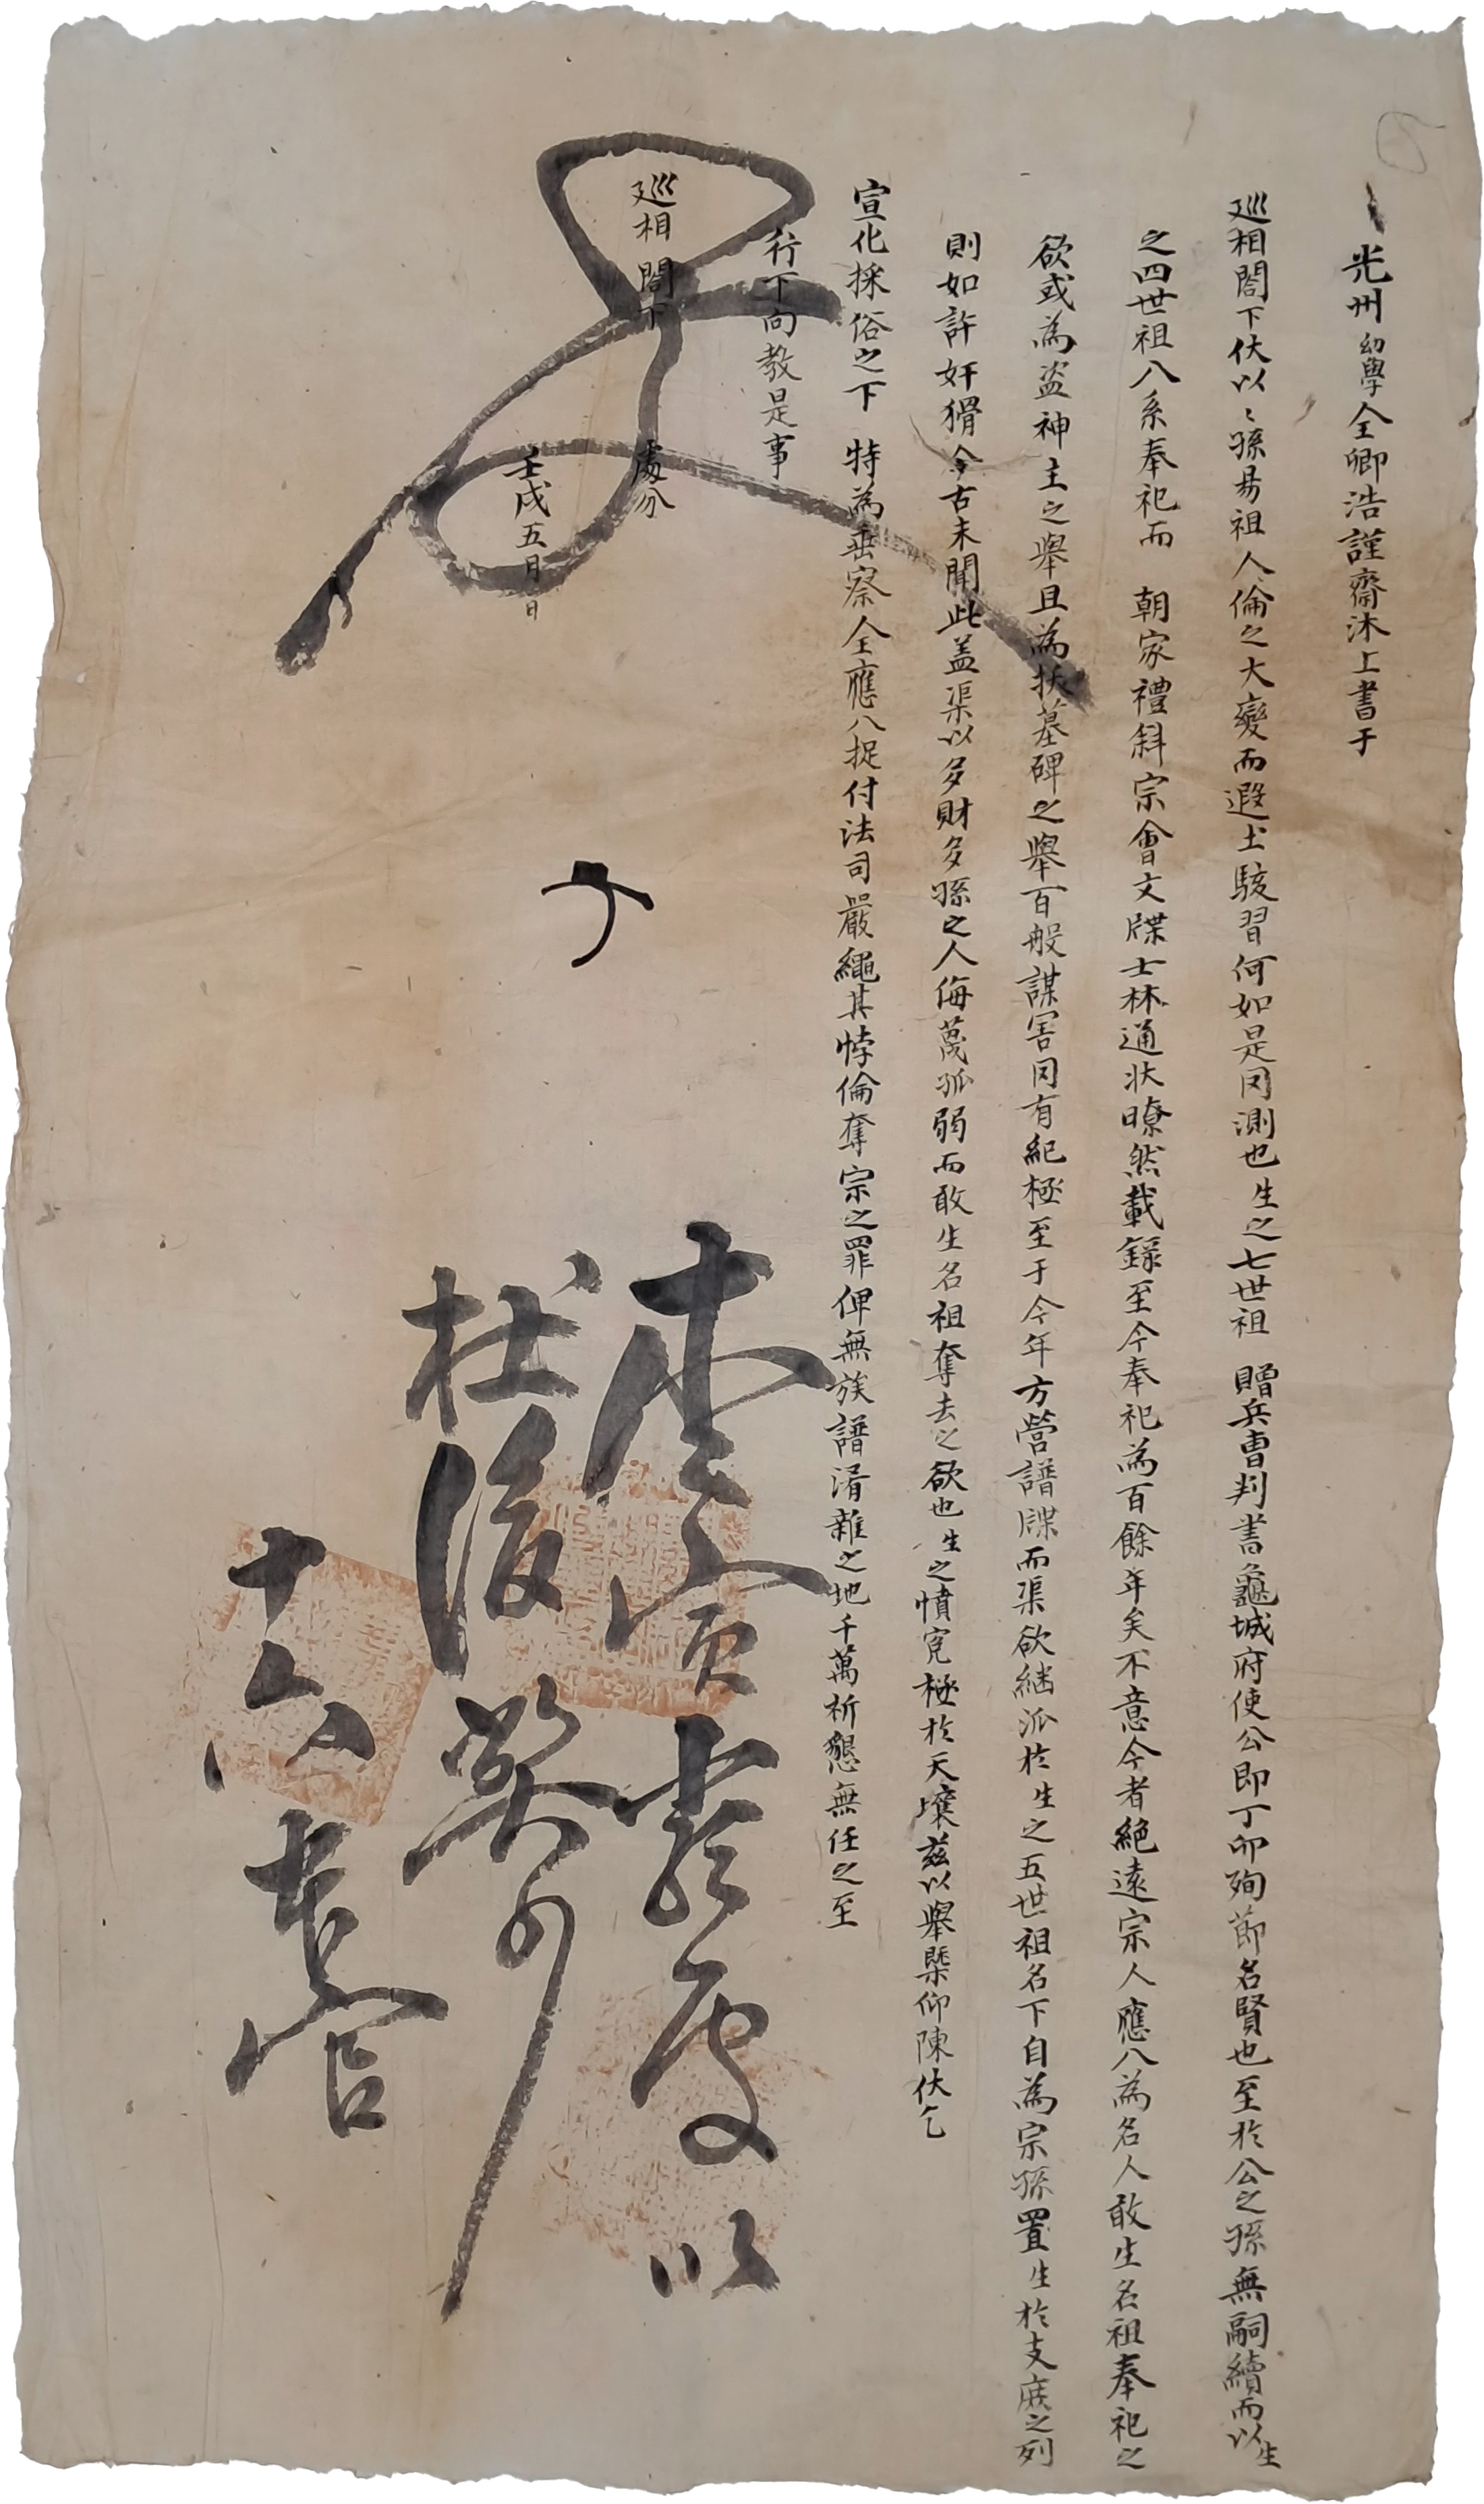 光州幼學全卿浩謹齋沐上書于
巡相閤下伏以〻孫易祖人倫之大變而遐土駭習何如是罔測也生之七世祖 贈兵曺判書龜城府使公即丁卯殉節名賢也至於公之孫無嗣續而以生
之四世祖入系奉祀而 朝家禮斜宗會文牒士林通狀瞭然載錄至今奉祀為百餘年矣不意今者絶遠宗人應八為名人敢生名祖奉祀之
欲或為盗神主之擧且為扶墓碑之擧百般謀害罔有紀極至于今年方營譜牒而渠欲継派於生之五世祖名下自為宗孫置生於支庶之列
則如許奸猾今古未聞此盖渠以多財多孫之人侮蔑孤弱而敢生名祖奪去之欲也生之憤寃極於天壤玆以擧槩仰陳伏乞
宣化採俗之下 特為垂察全應八捉付法司嚴繩其悖倫奪宗之罪俾無族譜淆雜之地千萬祈懇無任之至
行下向教是事
巡相閤下 處分
壬戌五月 日
査實嚴處以
杜後弊向
十六 本官